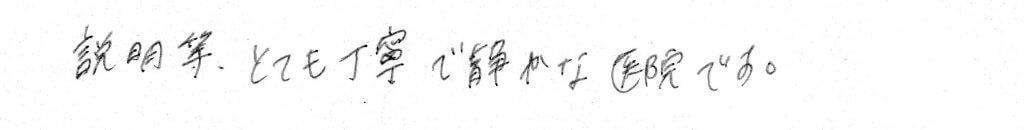 説明等、とても丁寧で静かな医院です。